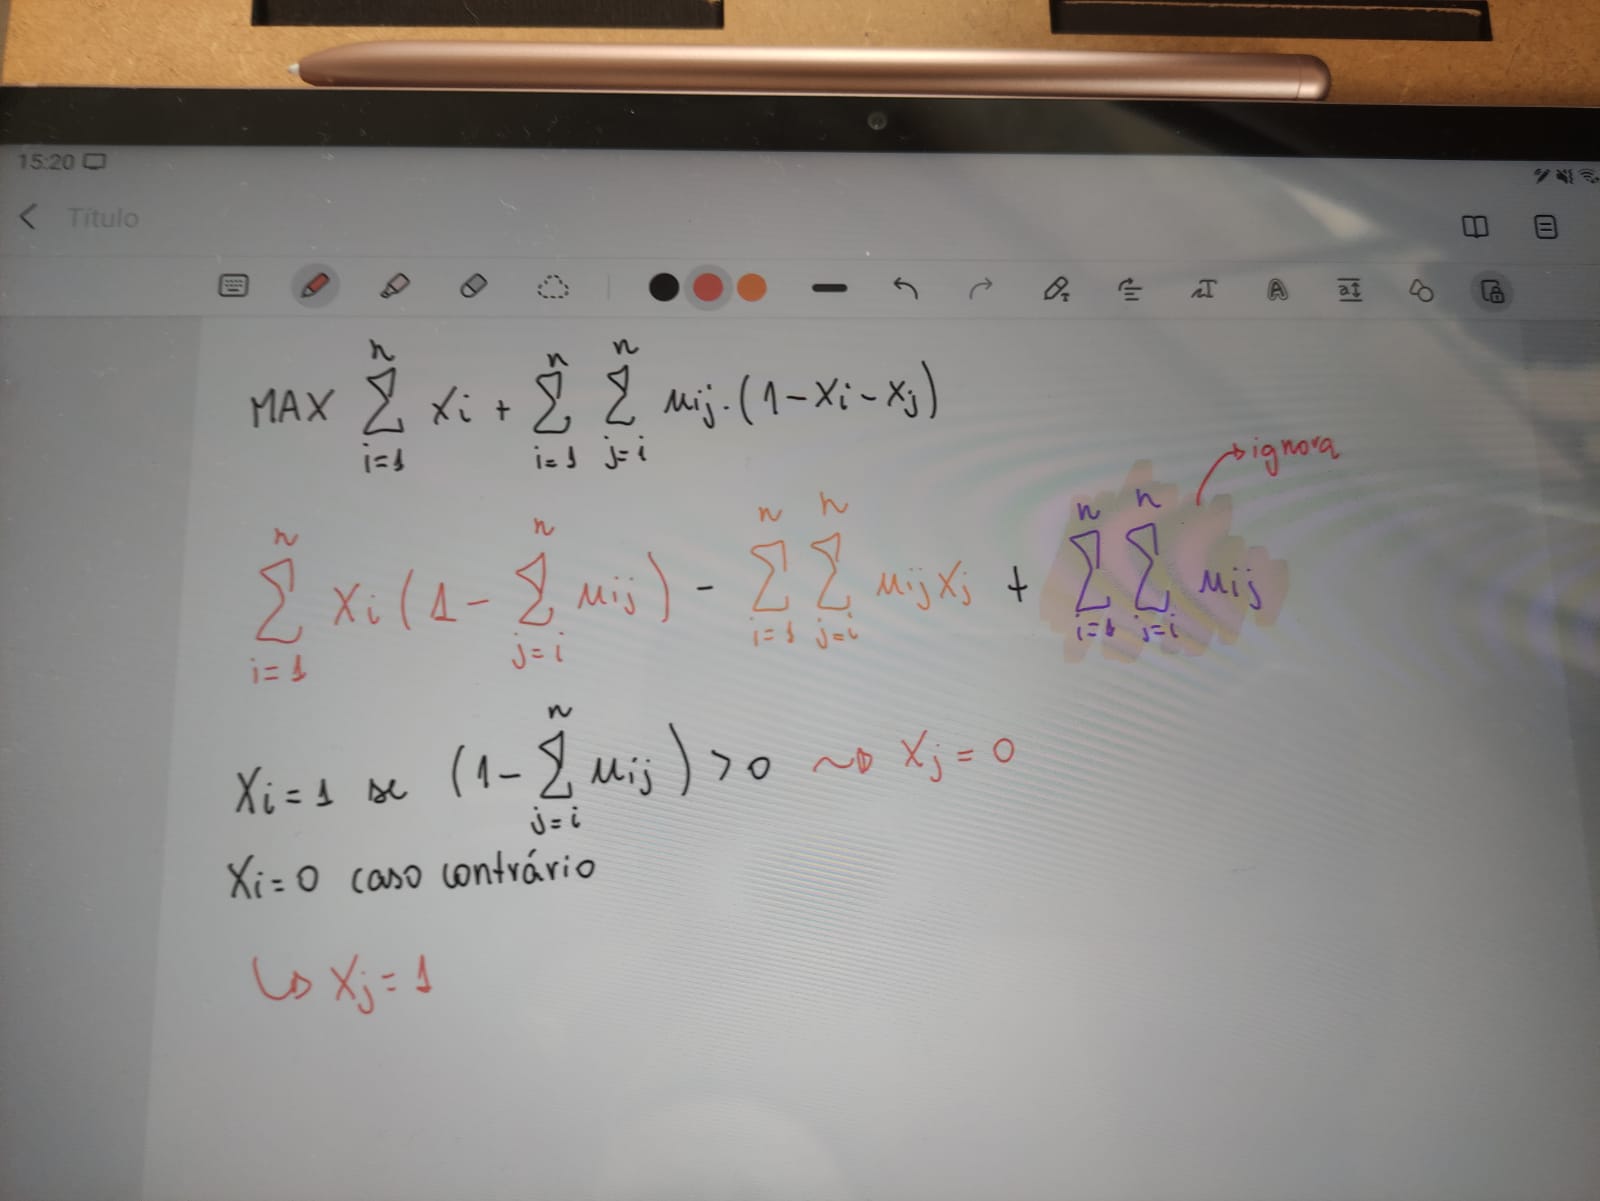 15:20
Título
MAX n∑i=1 Xi + n∑i=1 n∑j=i μij.(1-Xi-Xj)
ignora
n∑i=1 Xi(1- n∑j=i μij) - n∑i=1 n∑j=i μijXj + n∑i=1 n∑j=i μij
Xi=1 se (1- n∑j=i μij) >0 ~> Xj=0
Xi=0 caso contrário
↳ Xj=1